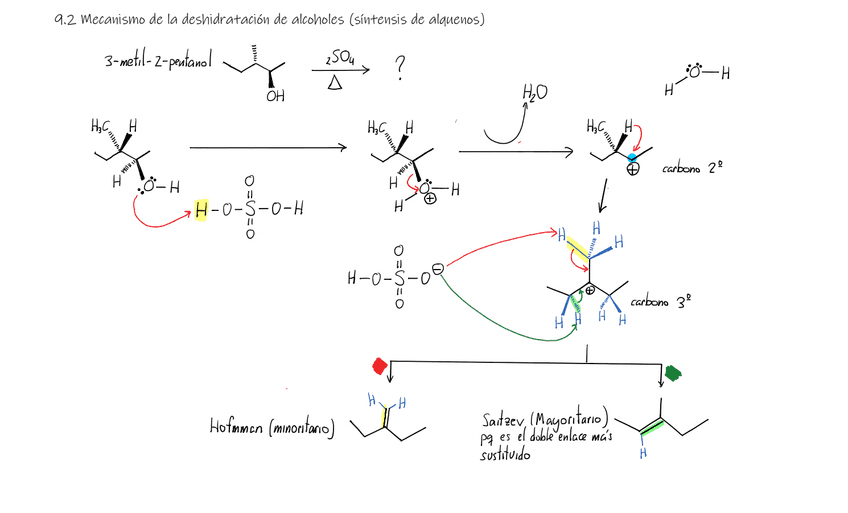 9.2 Mecanismo de la deshidratación de alcoholes (síntesis de alquenos)
3-metil-2-pentanol
2SO4
Δ
?
OH
H2O
H O H
H3C H
H O H
H-O-S-O-H
O
O
H3C H
H O H
H
⊕
H3C H
⊕
carbono 2º
H-O-S-O⊖
O
O
H H H
⊕
H H H H
carbono 3º
Hofmman (minoritario)
H H
Saitzev (Mayoritario)
pq es el doble enlace más
sustituido
H